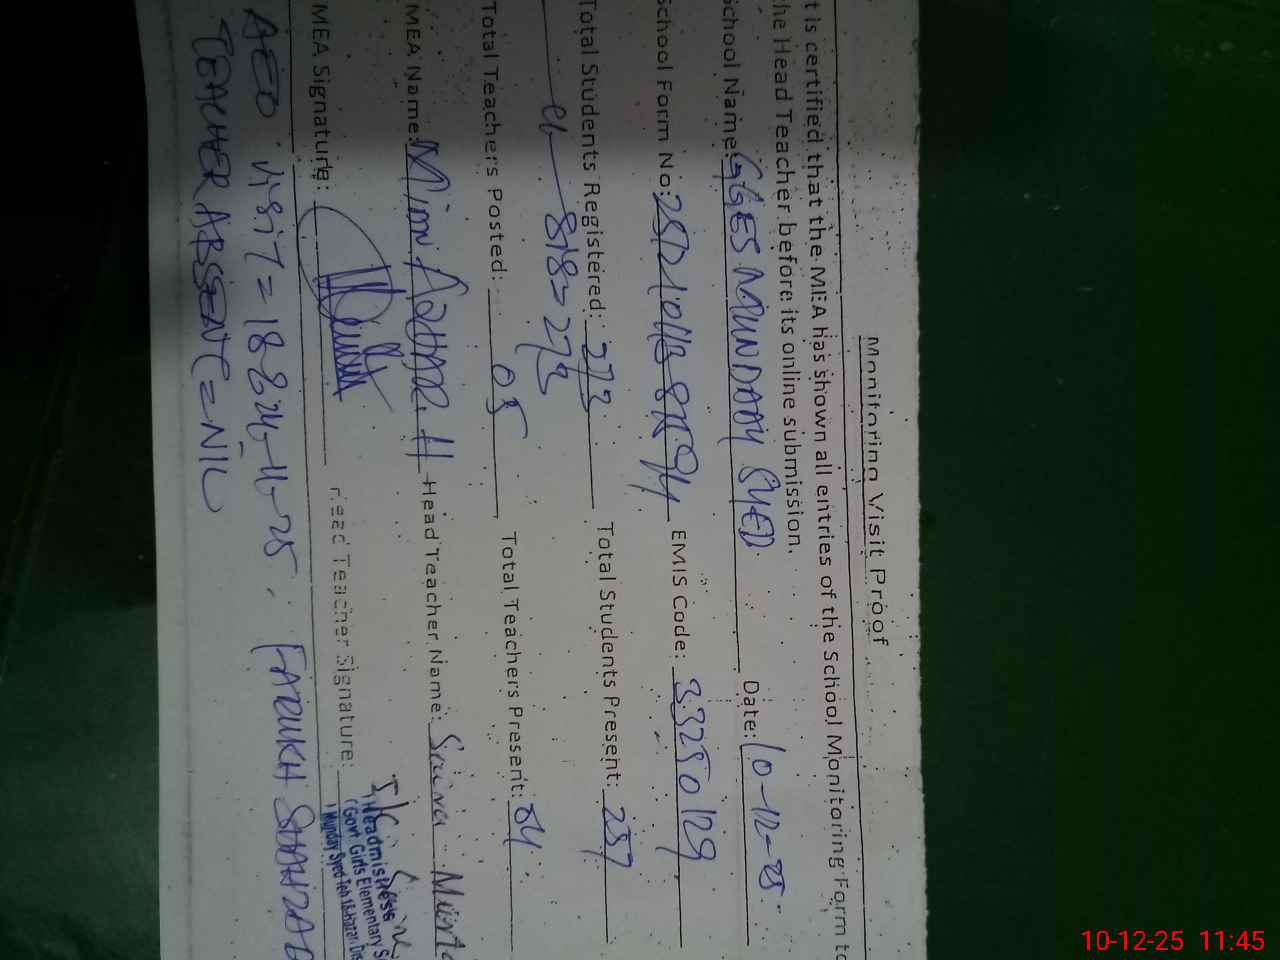 Monitoring Visit Proof
t is certified that the MEA has shown all entries of the School Monitoring Form to
he Head Teacher before its online submission.
School Name: GGES MUNDAAY SYED Date: 10-12-25
School Form No: EMIS Code: 33250129
Total Students Registered: 273 Total Students Present: 257
818=273
Total Teachers Posted: 05 Total Teachers Present: 04
MEA Name: H Head Teacher Name: Saima
MEA Signature: Head Teacher Signature:
Headmistress
Govt Girls Elementary S
Munday Syed Teh 18-Hazari Dis
AEO Visit = 18-8 24-11-25. FARUKH SHAHZAD
TEACHER ABSENT = NIL
10-12-25 11:45